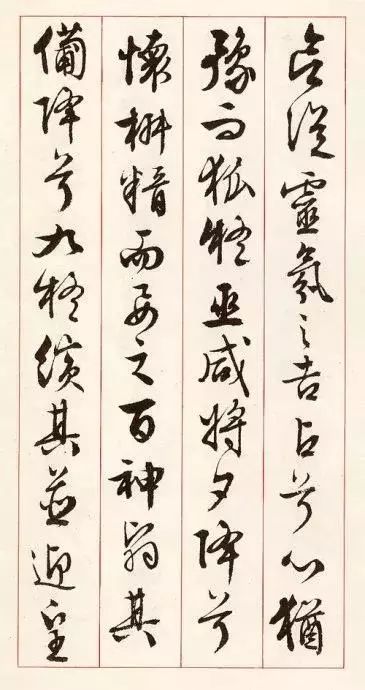 欲從靈氛之吉占兮心猶
豫而狐疑巫咸將夕降兮
懷椒糈而要之百神翳其
備降兮九疑繽其並迎皇